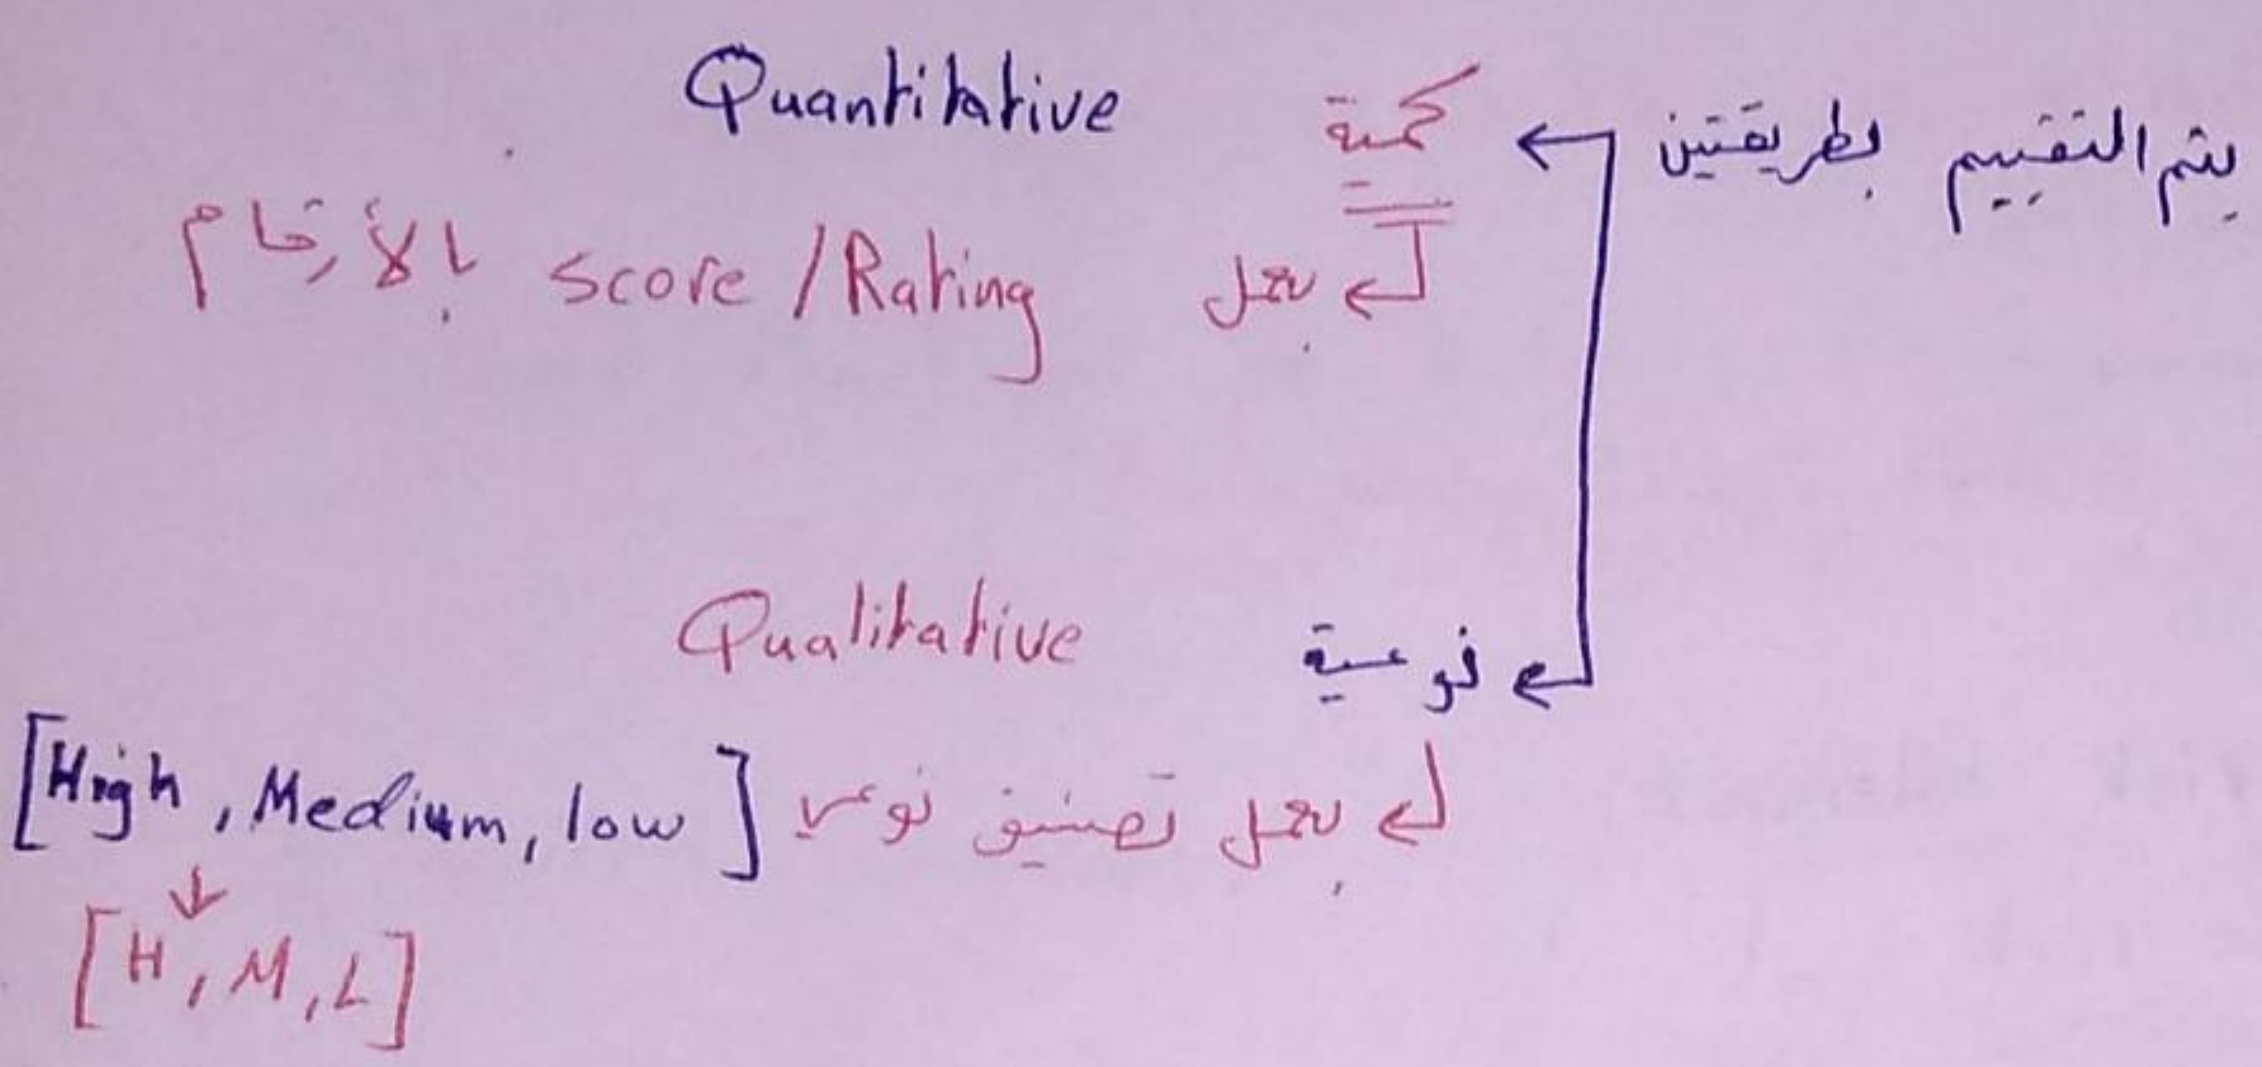 يتم التقييم بطريقتين ← كمية Quantitative
↳ بعمل score / Rating بالأرقام
↳ نوعية Qualitative
↳ بعمل تصنيف نوعي [High , Medium , low]
↓
[H , M , L]